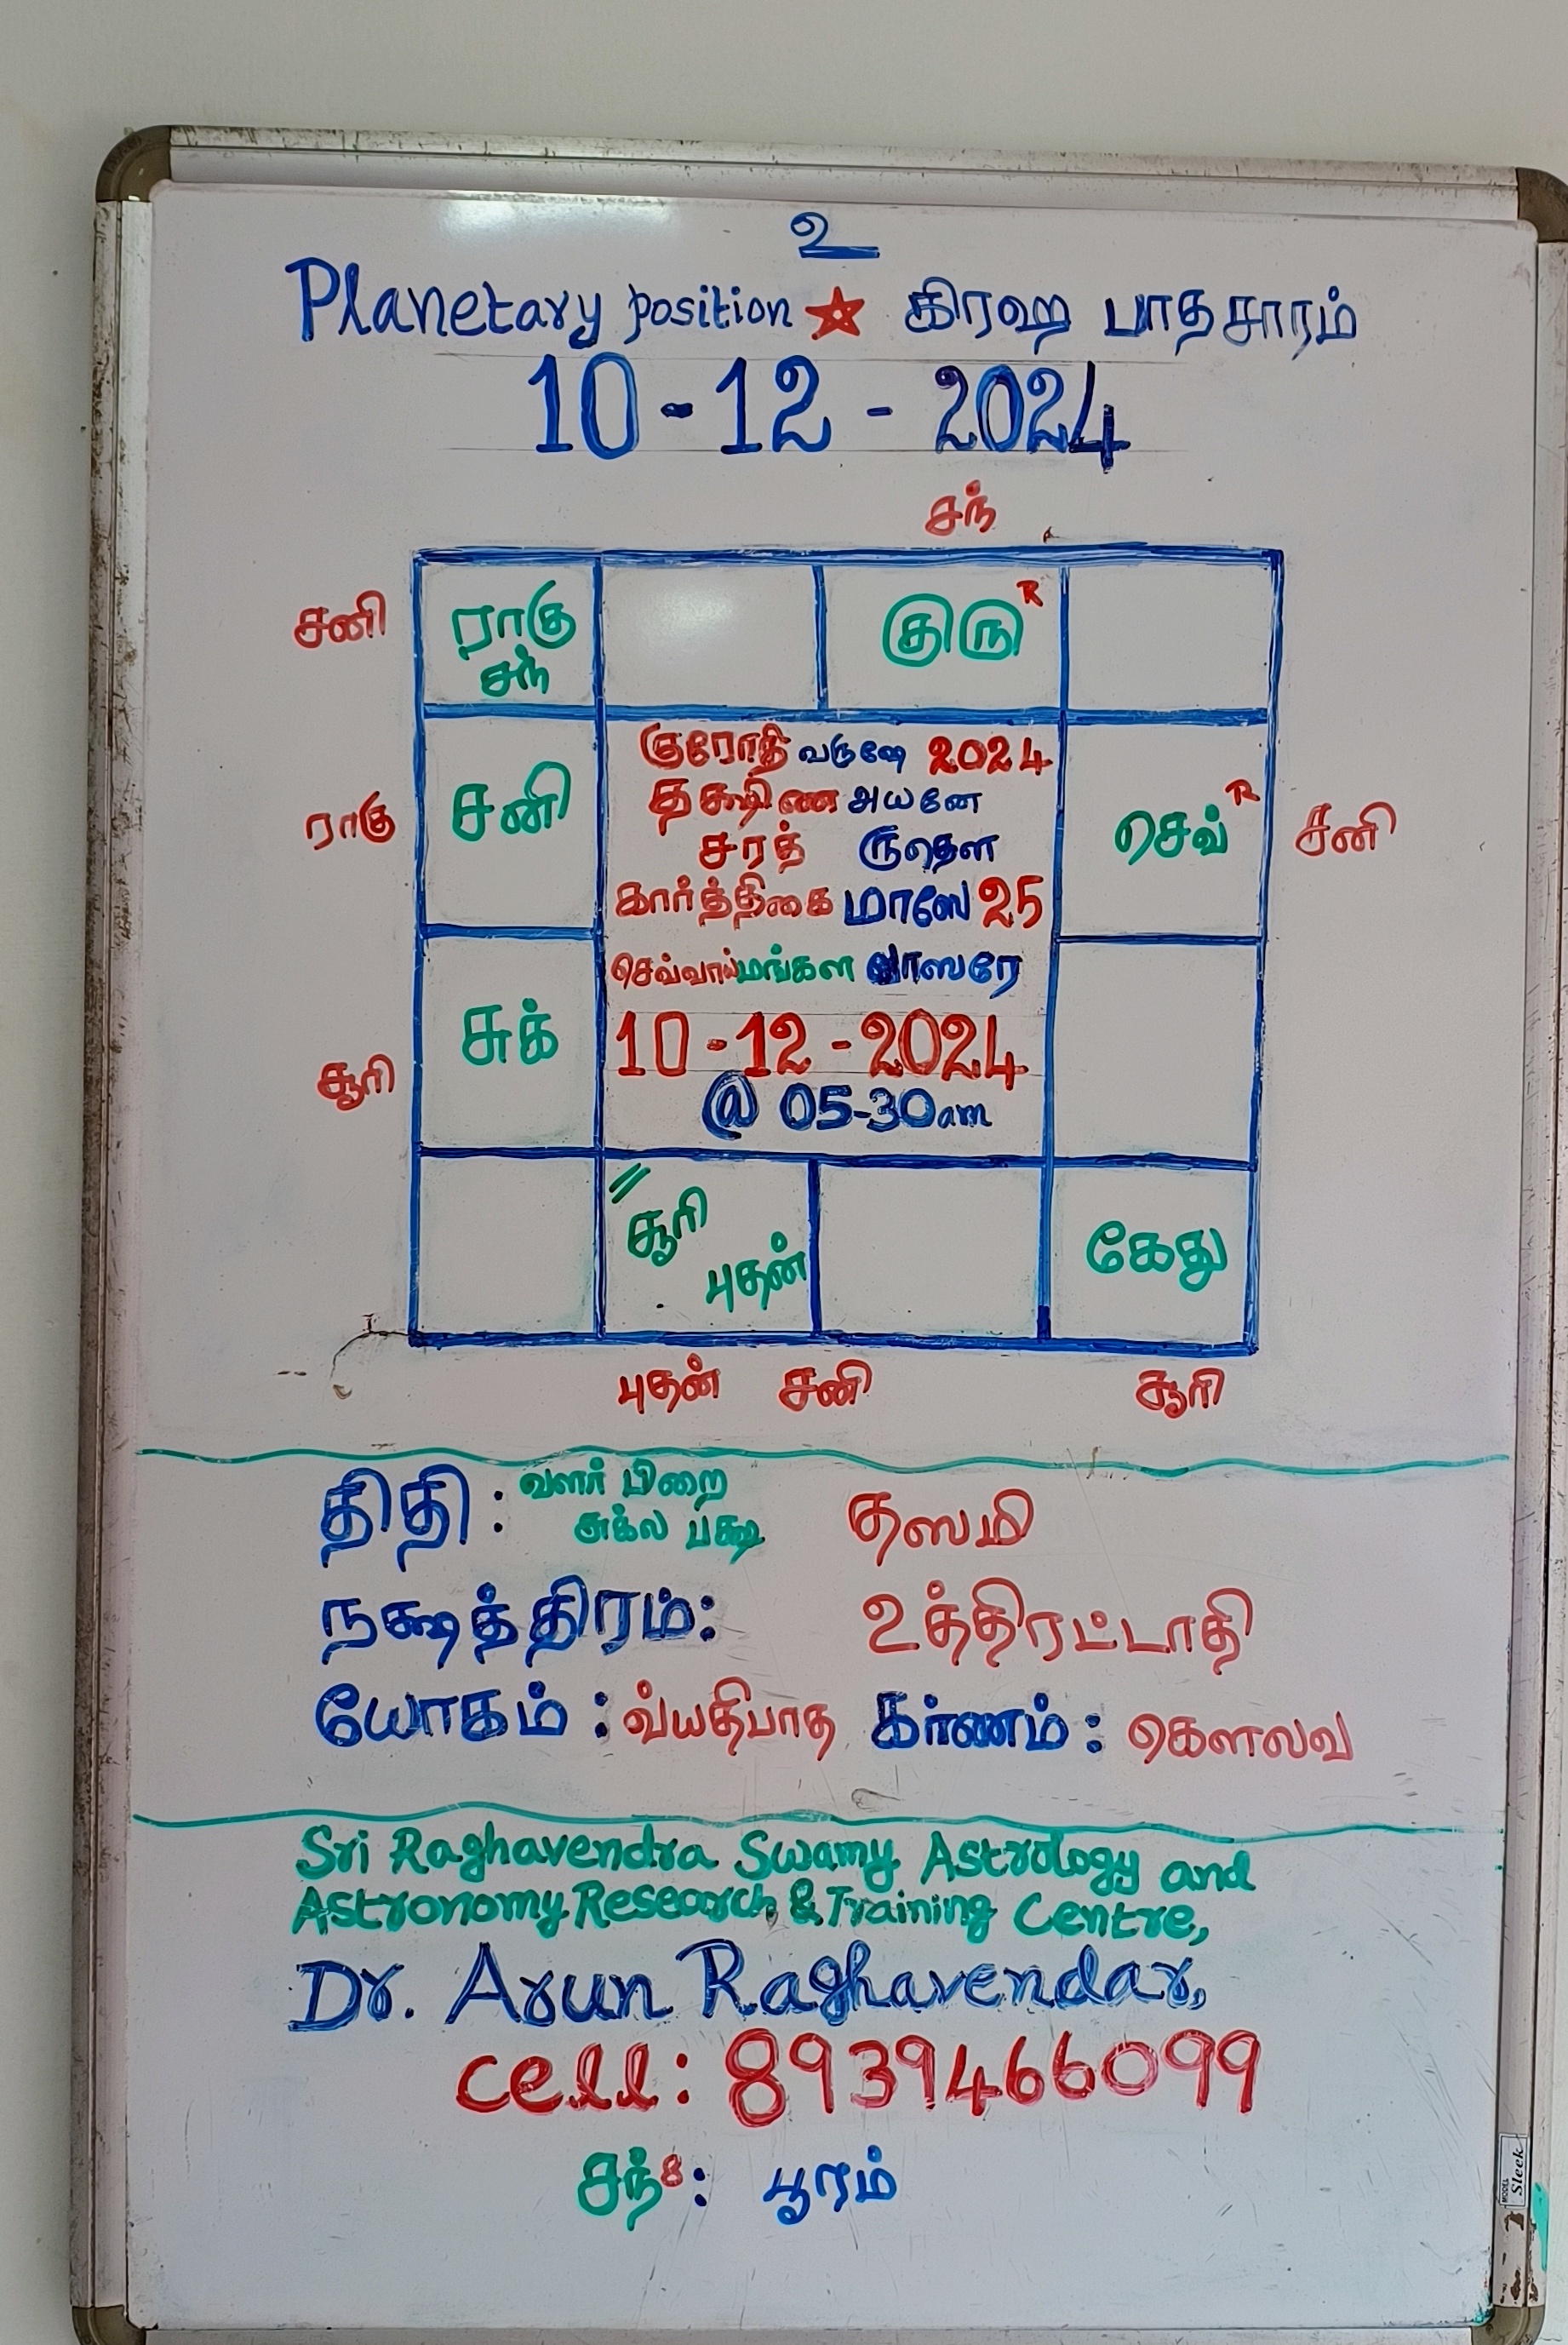 உ
Planetary position ★ கிரஹ பாதசாரம்
10-12-2024
சந்
சனி ராகு சந் குரு R
ராகு சனி செவ் R சனி
குரோதி வருஷே 2024
தக்ஷிண அயனே
சரத் ருதௌ
கார்த்திகை மாஸே 25
செவ்வாய் மங்கள வாஸரே
சூரி சுக்
10-12-2024
@ 05-30am
சூரி புதன் கேது
புதன் சனி சூரி
திதி: வளர் பிறை சுக்ல பக்ஷ தஸமி
நக்ஷத்திரம்: உத்திரட்டாதி
யோகம்: வ்யதிபாத கர்ணம்: கௌலவ
Sri Raghavendra Swamy Astrology and
Astronomy Research & Training Centre,
Dr. Arun Raghavendar,
cell: 8939466099
சந்8: பூரம்
MODEL Sleek